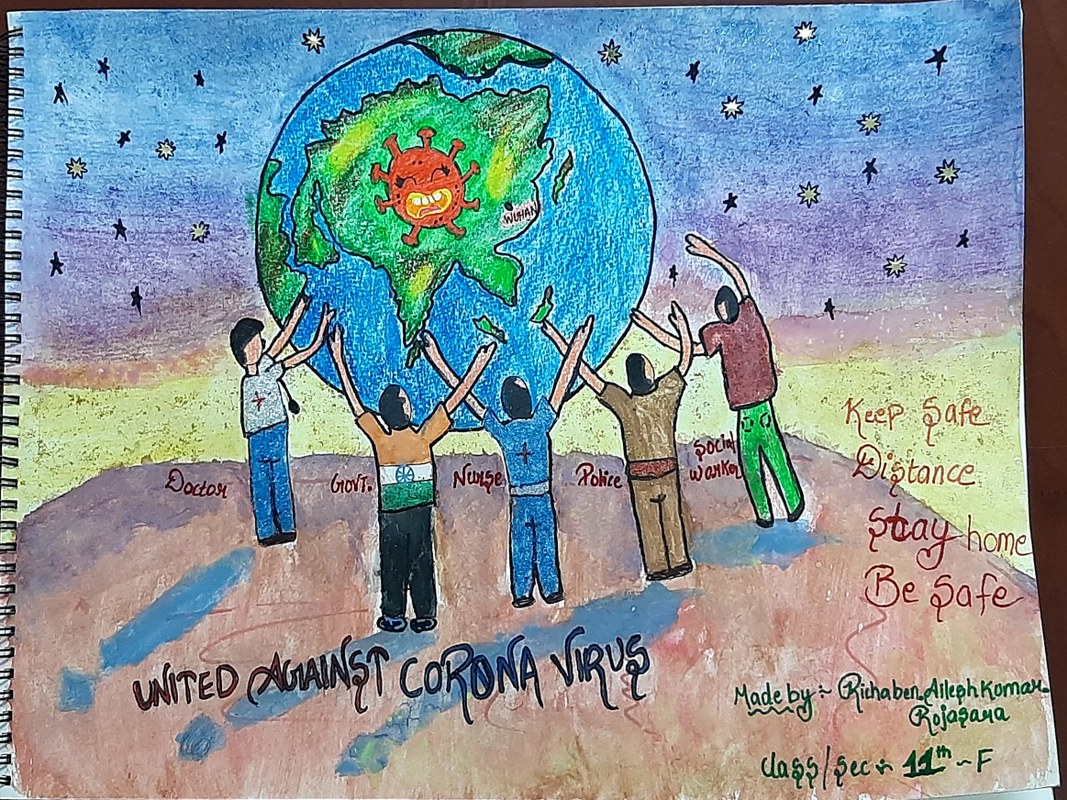 WUHAN
Doctor
Govt.
Nurse
Police
Social
worker
Keep Safe
Distance
Stay home
Be Safe
UNITED AGAINST CORONA VIRUS
Made by :- Richaben.AileshKumar.
Rojasara
Class/Sec :- 11th - F